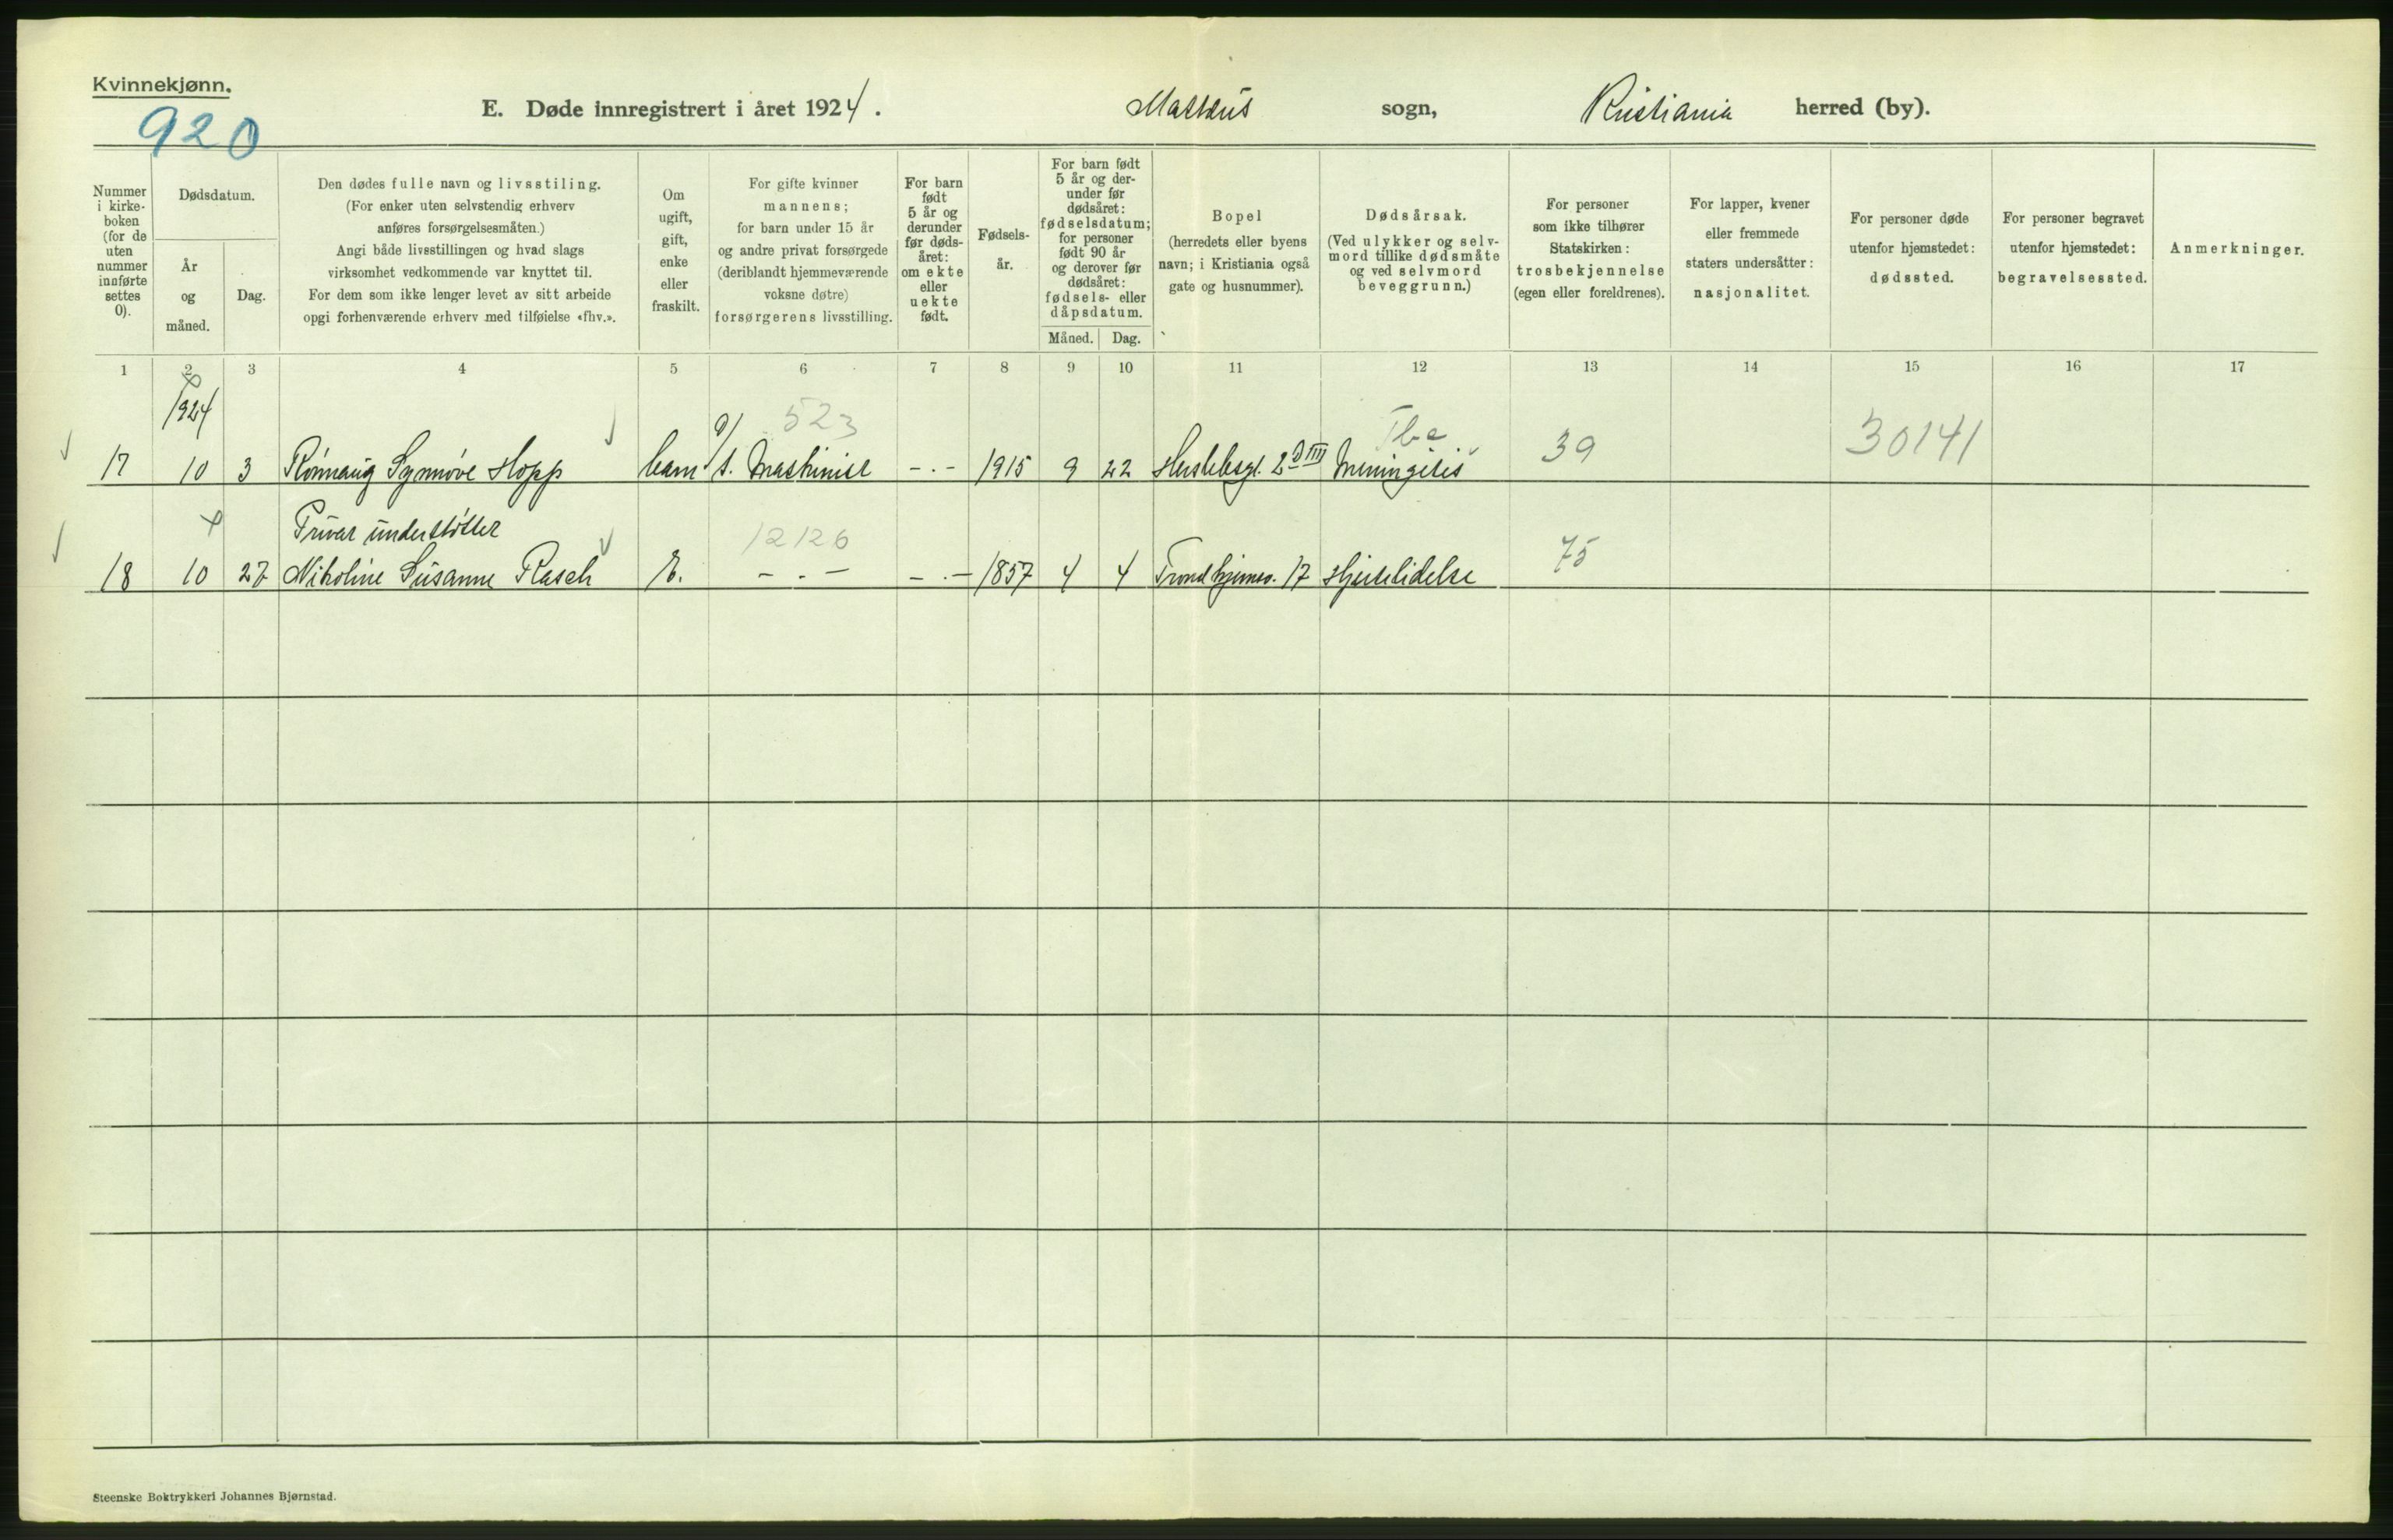 Kvinnekjønn.
920
E. Døde innregistrert i året 1924. Matteus sogn, Kristiania herred (by).
Nummer i kirke-boken (for de uten nummer innførte settes 0).
Dødsdatum.
År og måned.
Dag.
Den dødes fulle navn og livsstiling.
(For enker uten selvstendig erhverv
anføres forsørgelsesmåten.)
Angi både livsstillingen og hvad slags
virksomhet vedkommende var knyttet til.
For dem som ikke lenger levet av sitt arbeide
opgi forhenværende erhverv med tilføielse «fhv.».
Om ugift, gift, enke eller fraskilt.
For gifte kvinner
mannens;
for barn under 15 år
og andre privat forsørgede
(deriblandt hjemmeværende
voksne døtre)
forsørgerens livsstilling.
For barn født 5 år og derunder før døds-året: om ekte eller uekte født.
Fødsels-år.
For barn født
5 år og der-
under før
dødsåret:
fødselsdatum;
for personer
født 90 år
og derover før
dødsåret:
fødsels- eller
dåpsdatum.
Måned. Dag.
Bopel
(herredets eller byens
navn; i Kristiania også
gate og husnummer).
Dødsårsak.
(Ved ulykker og selv-
mord tillike dødsmåte
og ved selvmord
beveggrunn.)
For personer
som ikke tilhører
Statskirken:
trosbekjennelse
(egen eller foreldrenes).
For lapper, kvener
eller fremmede
staters undersåtter:
nasjonalitet.
For personer døde
utenfor hjemstedet:
dødssted.
For personer begravet
utenfor hjemstedet:
begravelsessted.
Anmerkninger.
1 2 3 4 5 6 7 8 9 10 11 12 13 14 15 16 17
1924 523 Tbc
17 10 3 Rønnaug Synnøve Hopp barn d/ s. Maskinist -.- 1915 9 22 Herslebsgt. 2 D III Meningitis 39 30141
Privat understøttet 12126
18 10 27 Nikoline Susanne Rasch E. -.- -.- 1857 4 4 Trondhjemsv. 17 Hjertelidelse 75
Steenske Boktrykkeri Johannes Bjørnstad.